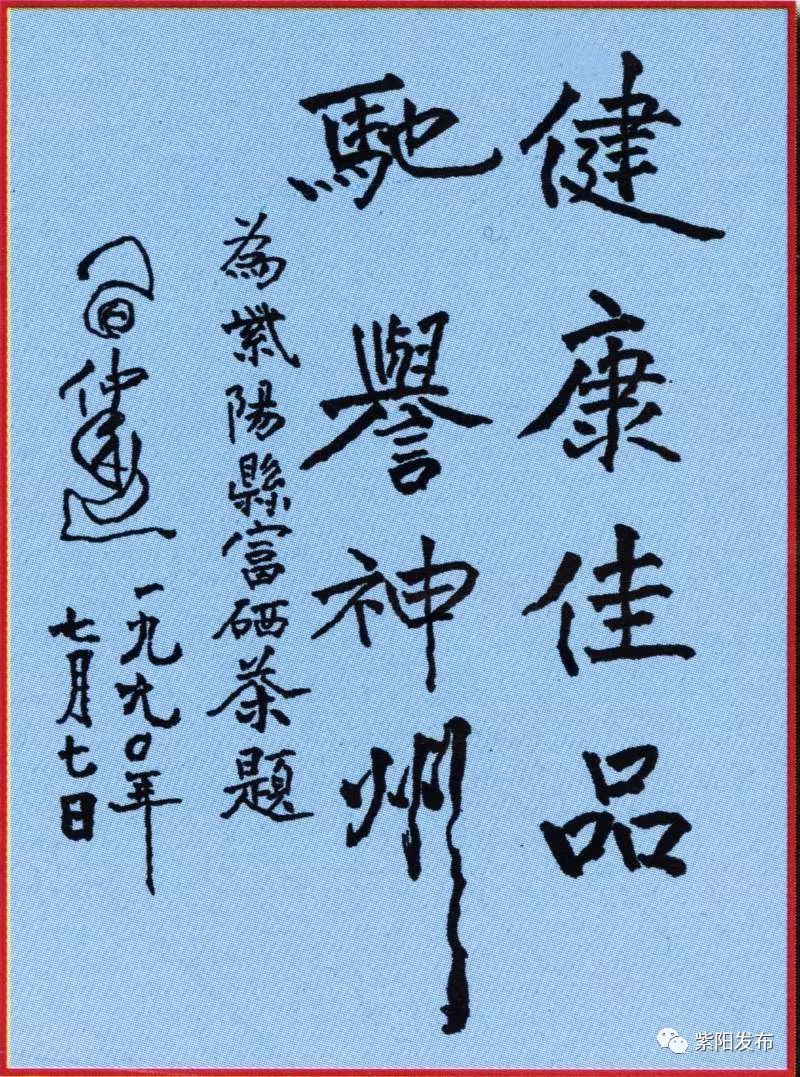 健康佳品
馳譽神州
為紫陽縣富硒茶題
一九九0年
七月七日
紫阳发布